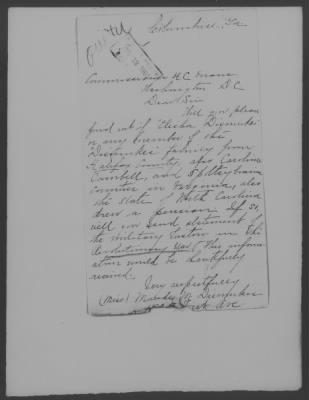 Columbus, Ga
Commissioner H C Evans
Washington D.C.
Dear Sir
Will you please
find out if Elisha Dismukes
or any member of the
"Dismukes" family from
Halifax County, also Caroline
Cambell, and Spottsylvania
counties in Virginia, also
the State of North Carolina
drew a pension. If so,
will you send statement of
the military in the
Revolutionary War? This inform-
ation would be thankfully
received.
Very respectfully
(Miss) M Dismukes
Ave